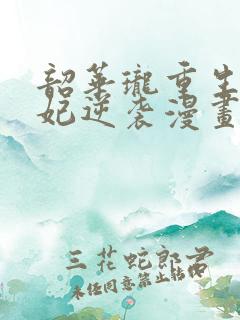 韶華瓏重生
妃逆袭漫畫
三花蛇郎君
未经同意禁止转载